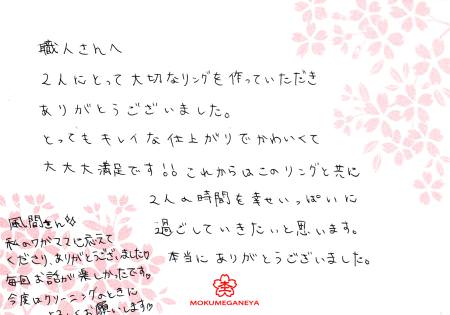 職人さんへ
2人にとって大切なリングを作っていただき
ありがとうございました。
とってもキレイな仕上がりでかわいくて
大大大満足です!! これからはこのリングと共に
2人の時間を幸せいっぱいに
過ごしていきたいと思います。
本当にありがとうございました。
風間さん
私のワガママに応えて
くださり、ありがとうございました♡
毎回お話が楽しかったです。
今度はクリーニングのときに
よろしくお願いします♡
MOKUMEGANEYA